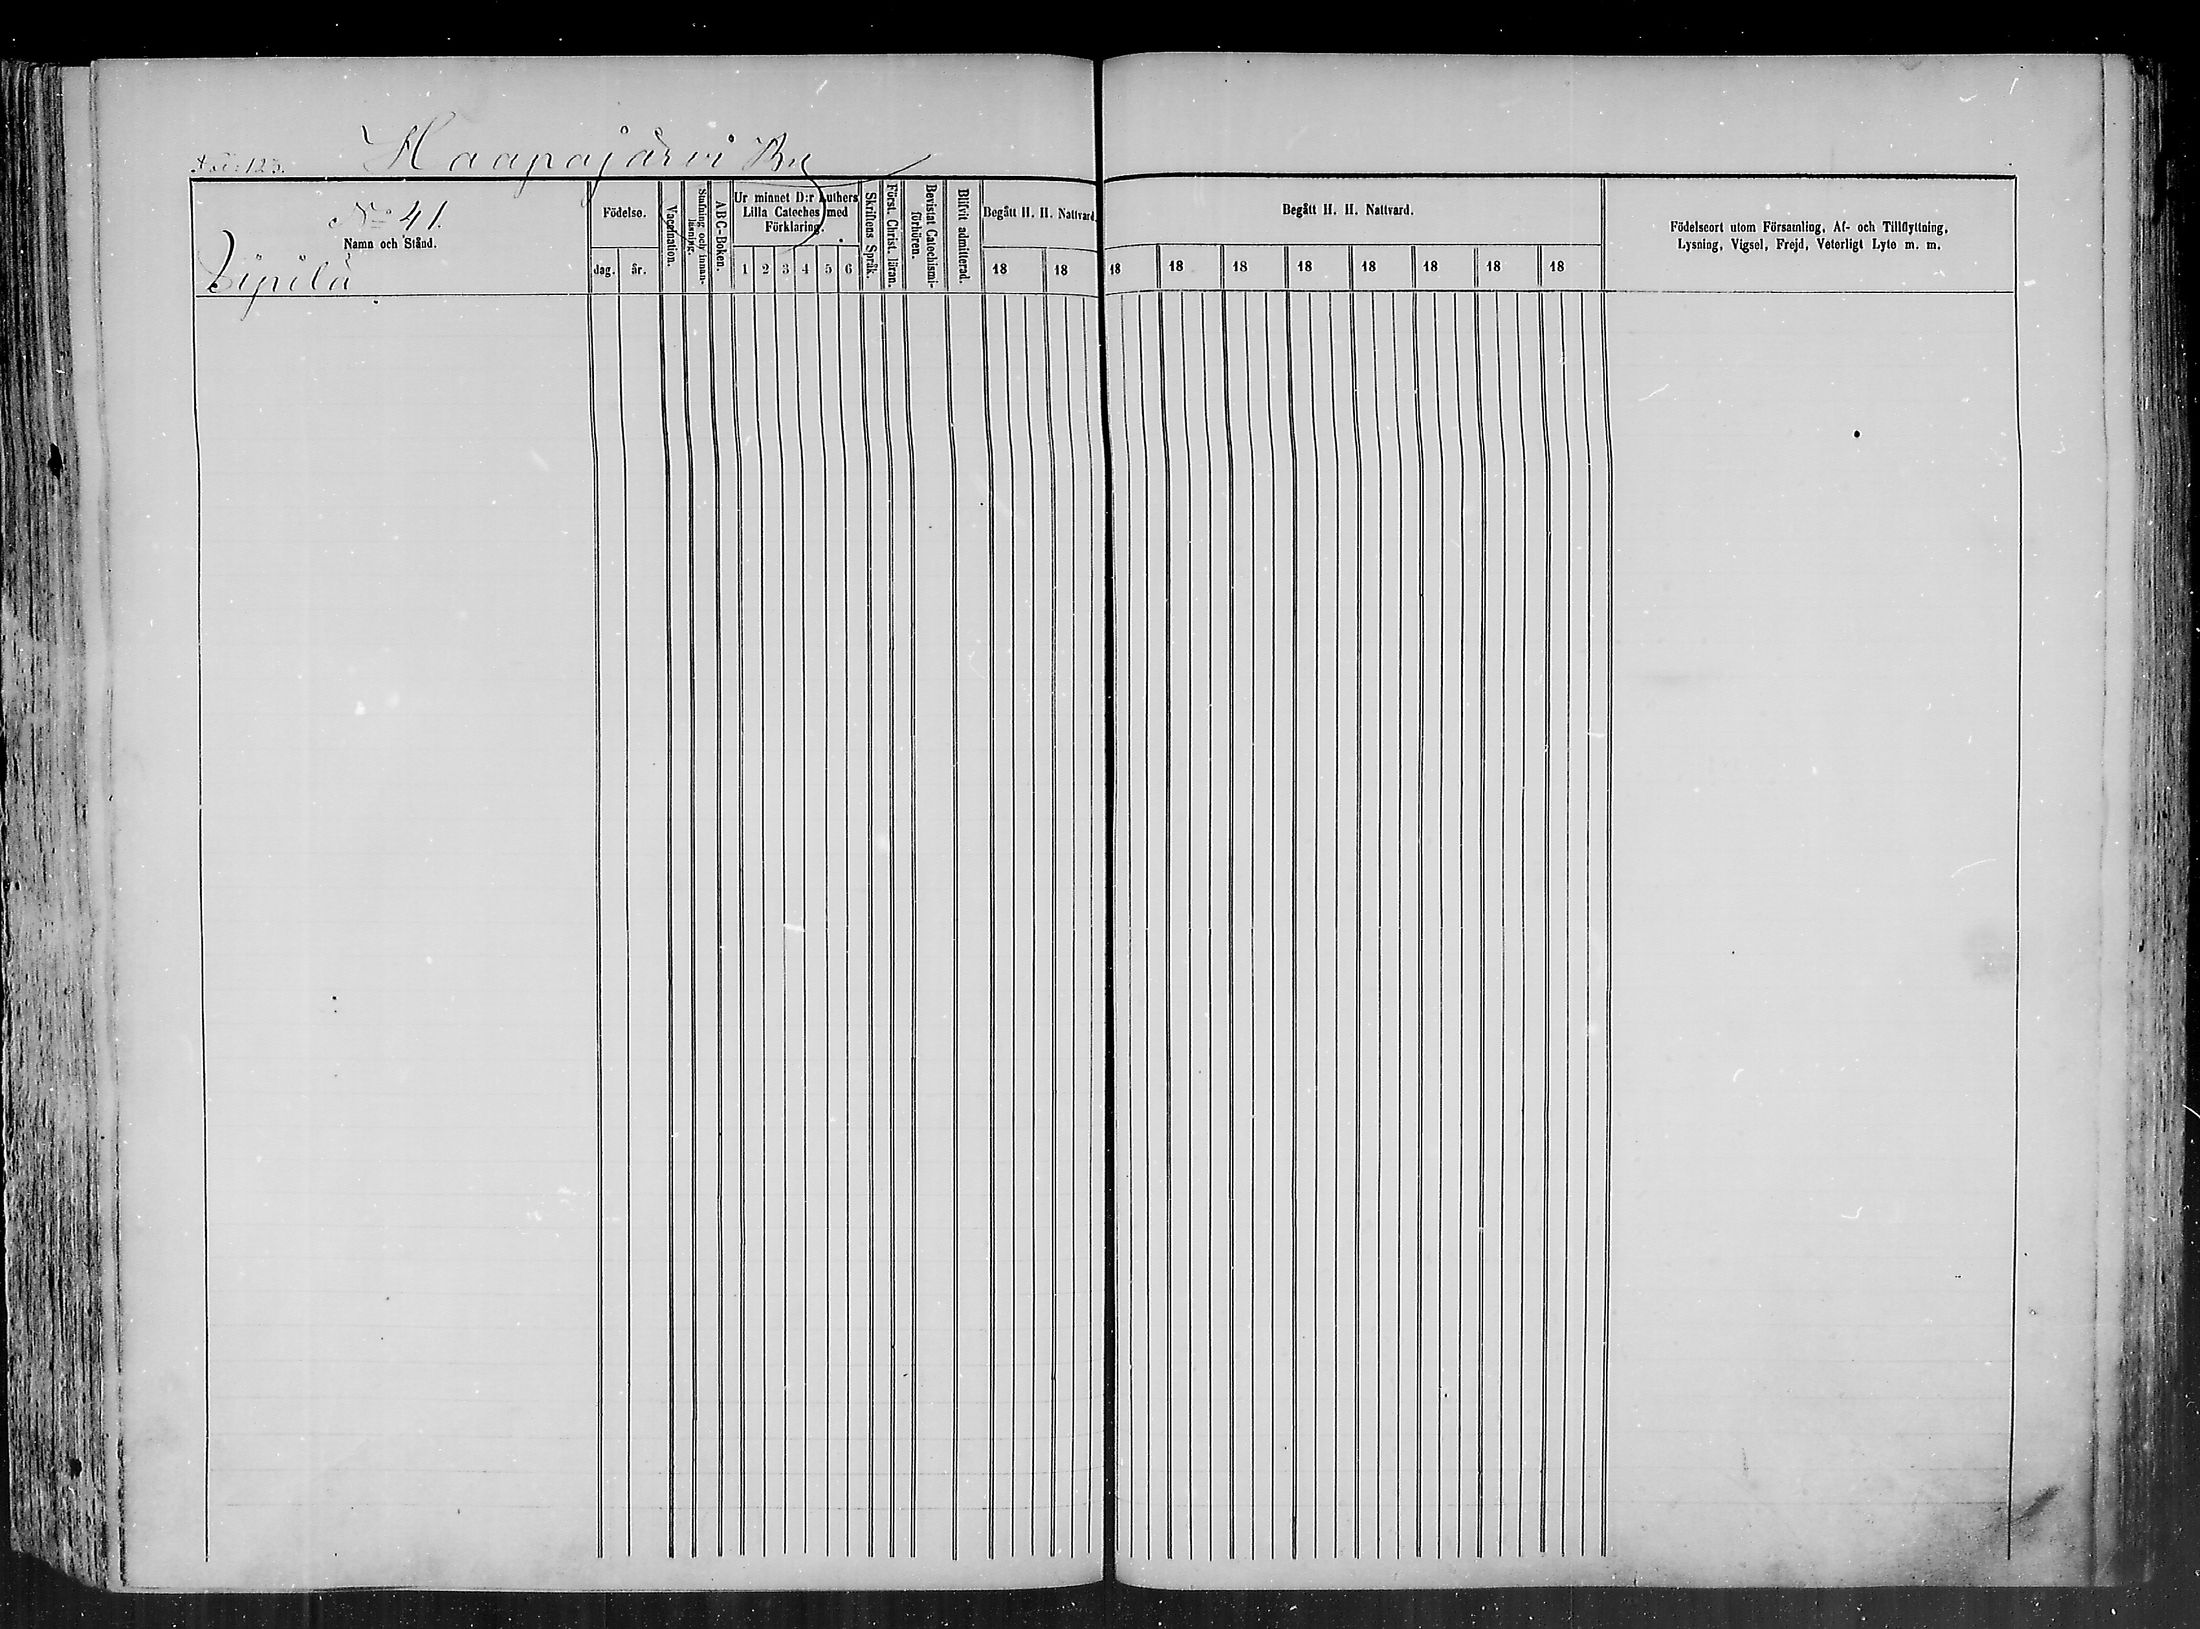 123. Haapajärvi By
No 41.
Namn och Stånd.
Födelse.
dag. år.
Vaccination.
Stafning och innan-
läsning.
ABC-Boken.
Ur minnet D:r Luthers
Lilla Cateches med
Förklaring.
1 2 3 4 5 6
Skriftens Språk.
Först. Christ. läran.
Bevistat Catechismi-
förhören.
Blifvit admitterad.
Begått H. H. Nattvard.
18 18
Begått H. H. Nattvard.
18 18 18 18 18 18 18 18
Födelseort utom Församling, Af- och Tillflyttning,
Lysning, Vigsel, Frejd, Veterligt Lyte m. m.